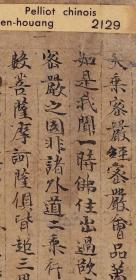 Pelliot chinois
en-houang 2129
大乗密嚴經密嚴會品第
如是我聞一時佛住出過欲
密嚴之國非諸外道二乗行
數菩薩摩訶薩俱皆超三界